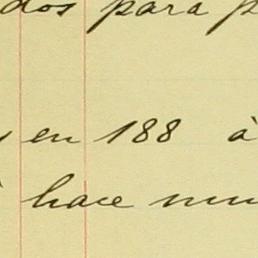 dos para p
en 188 à
hace mu